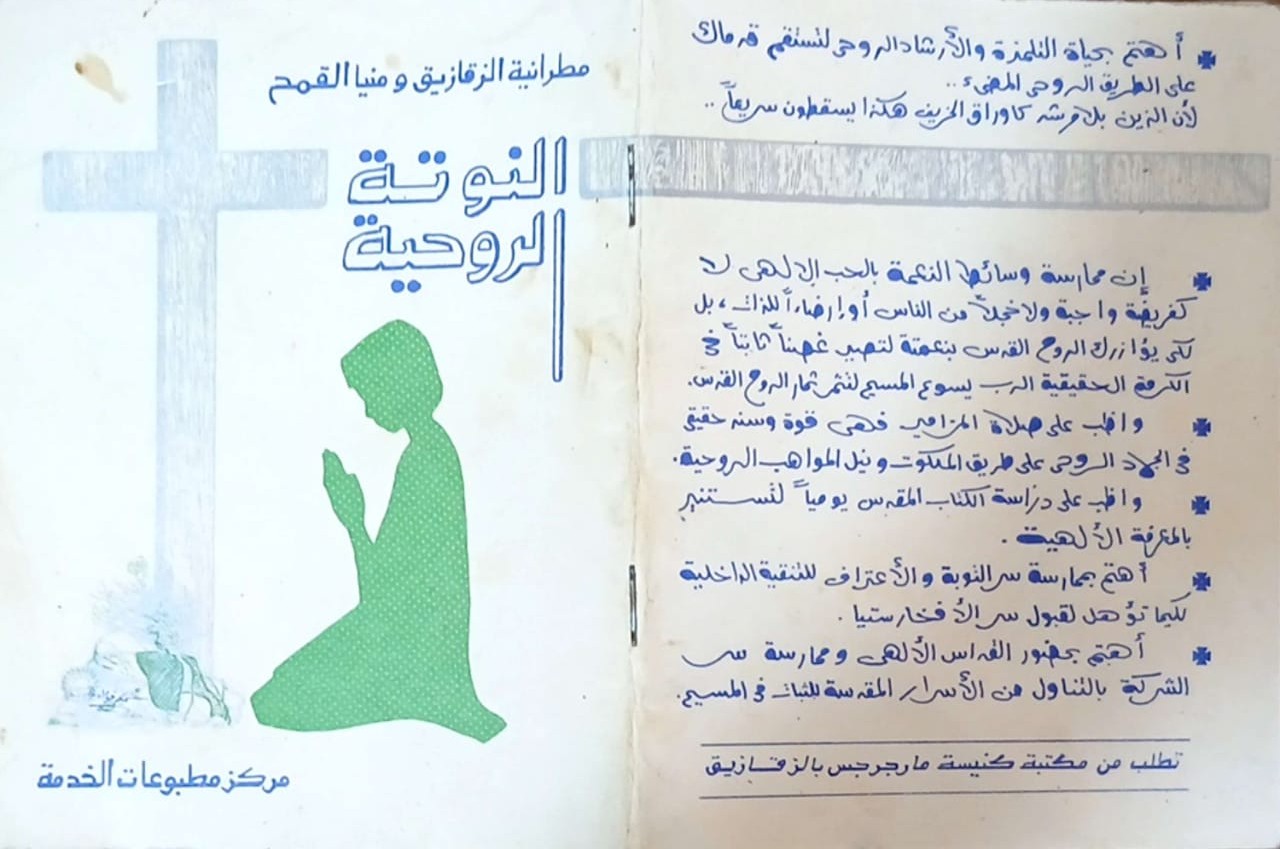 مطرانية الزقازيق ومنيا القمح
النوتة
الروحية
مركز مطبوعات الخدمة
أهتم بحياة التلمذة والأرشاد الروحى لتستقم قدماك
على الطريق الروحى المضىء ..
لأن الذين بلا مرشد كاوراق الخريف هكذا يسقطون سريعاً ..
إن ممارسة وسائط النعمة بالحب الإلهى لا
كفريضة واجبة ولا خجلاً من الناس أو إرضاءاً للذات ، بل
لكى يؤازرك الروح القدس بنعمتة لتصير غصناً ثابتاً فى
الكرمة الحقيقية الرب يسوع المسيح لتثمر ثمار الروح القدس.
واظب على صلاة المزامير فهى قوة وسند حقيقى
فى الجهاد الروحى على طريق الملكوت ونيل المواهب الروحية.
واظب على دراسة الكتاب المقدس يومياً لتستنير
بالمعرفة الألهية .
أهتم بممارسة سر التوبة والأعتراف للتنقية الداخلية
لكيما تؤهل لقبول سر الأفخارستيا .
أهتم بحضور القداس الألهى وممارسة سر
الشركة بالتناول من الأسرار المقدسة للثبات فى المسيح.
تطلب من مكتبة كنيسة مارجرجس بالزقازيق